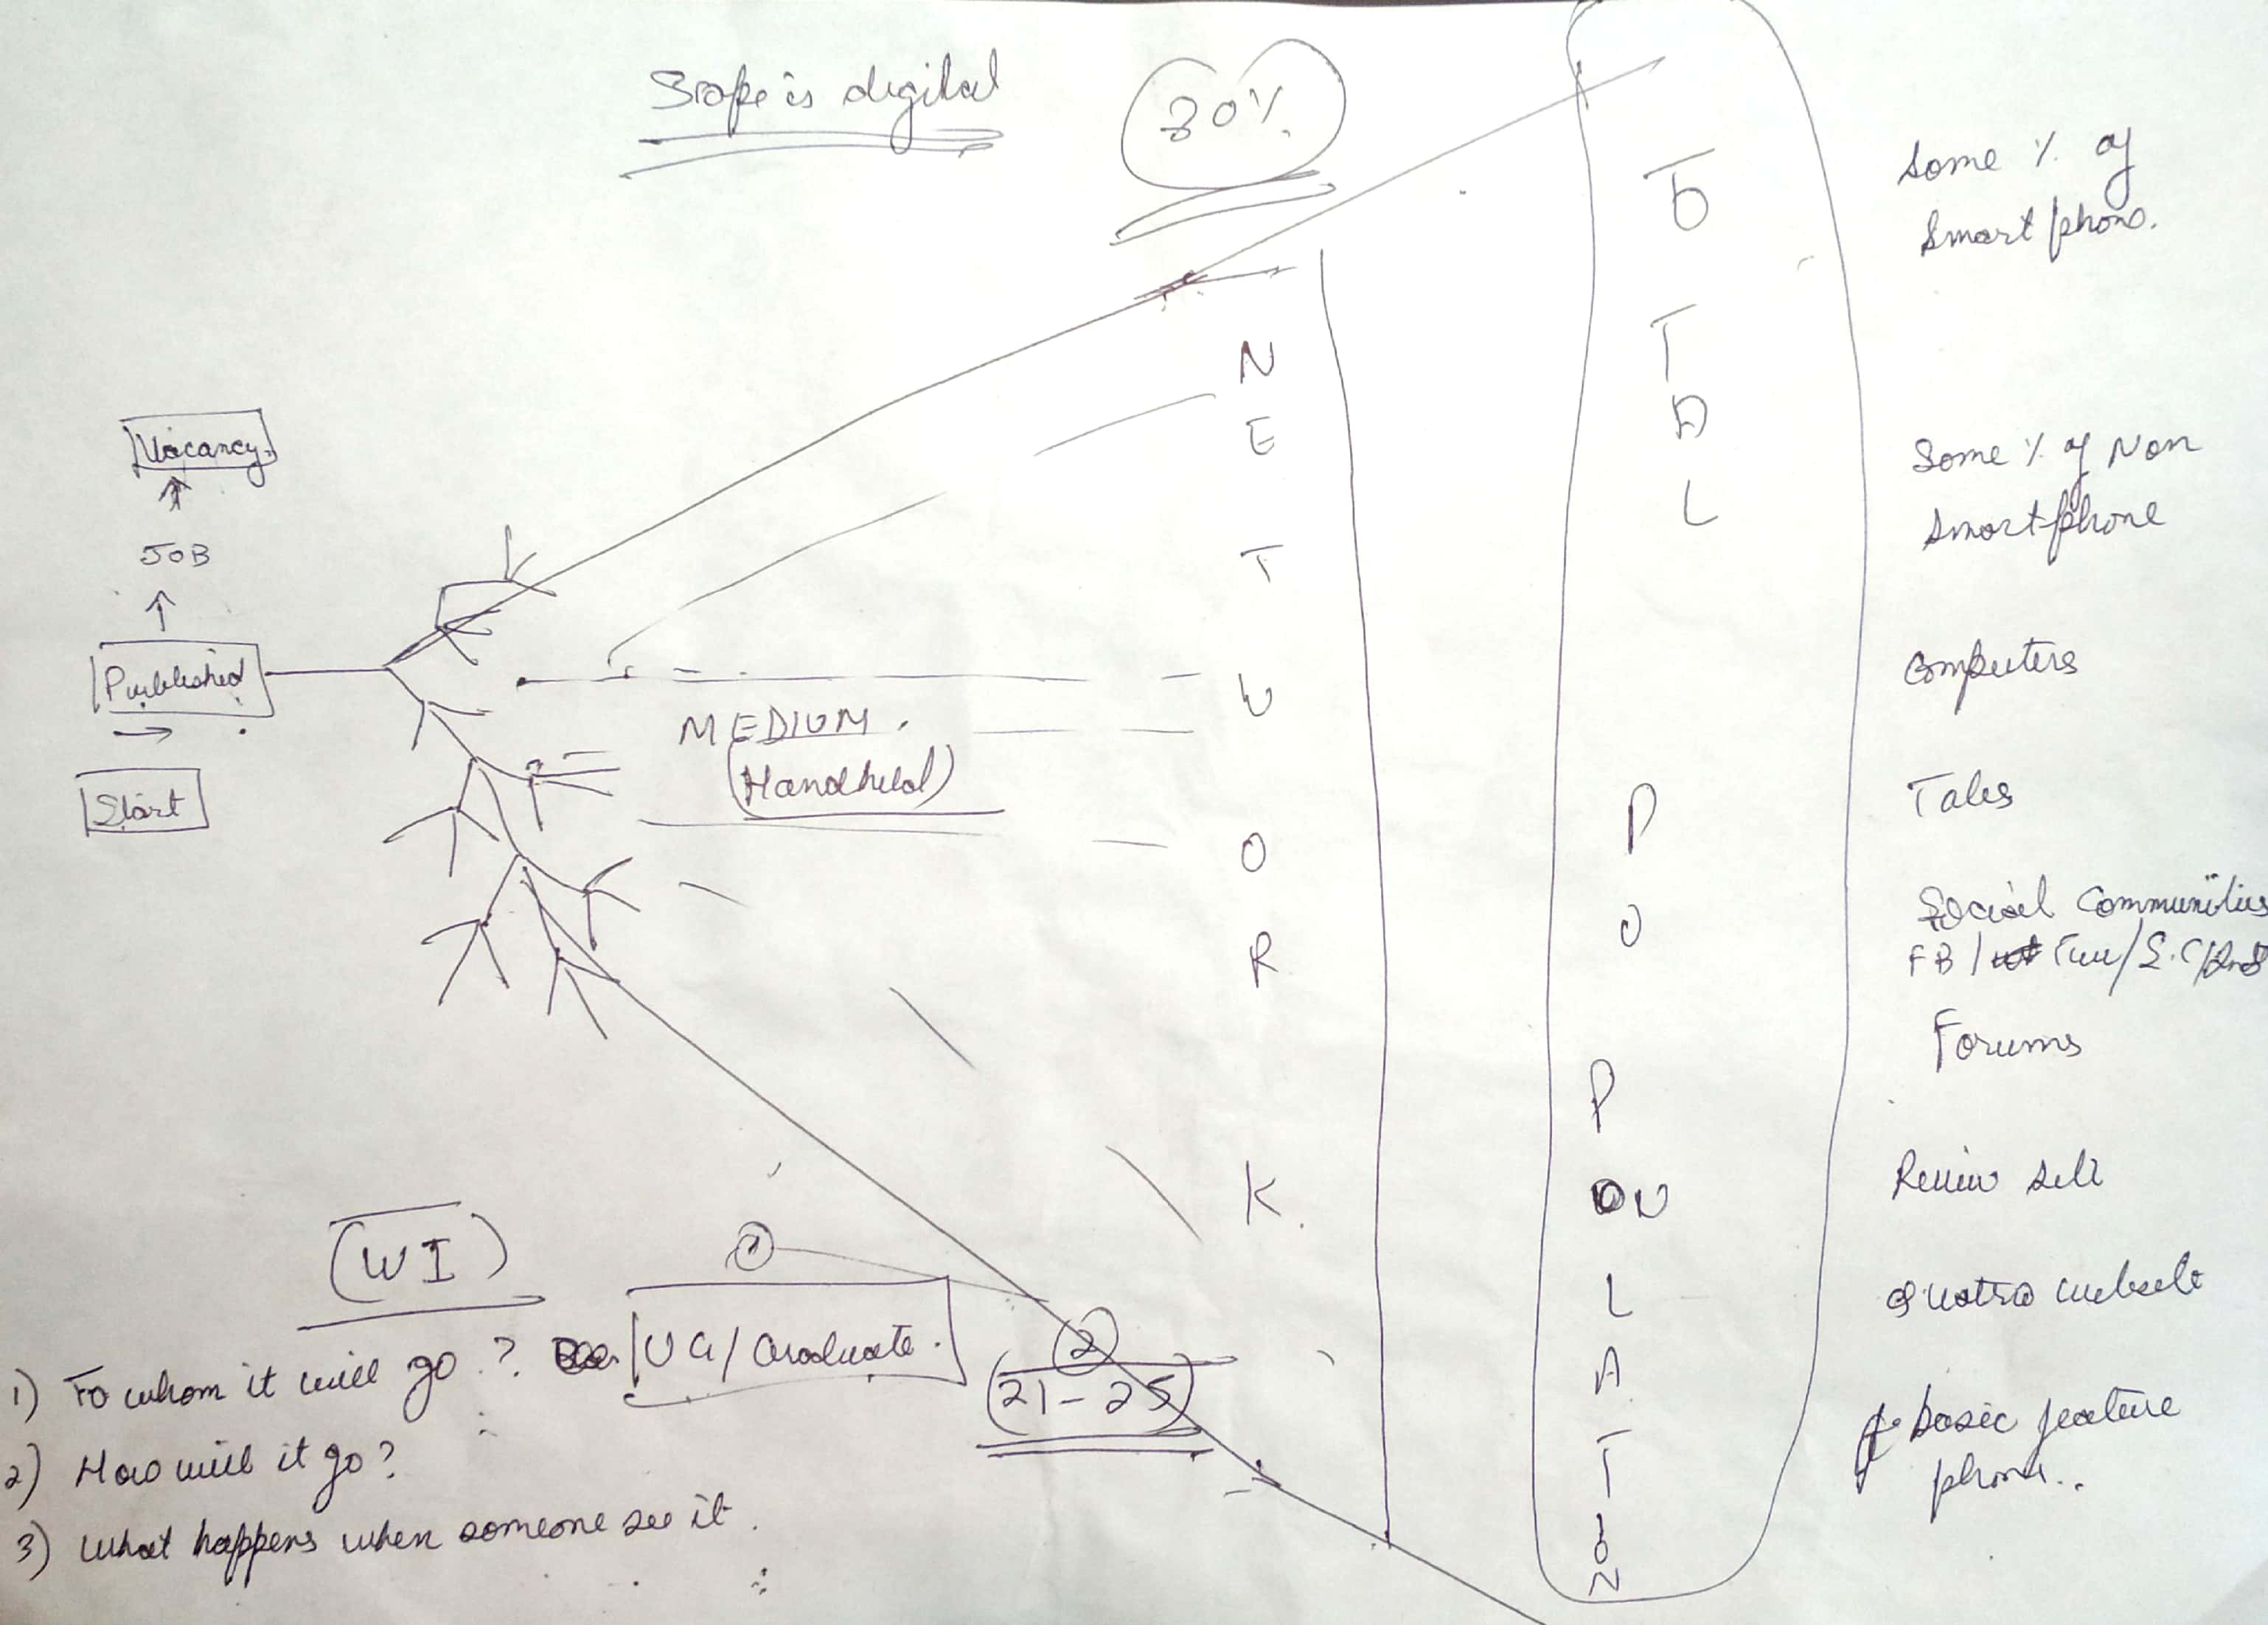 Scope is digital
30%
Vacancy
JOB
Published
Start
MEDIUM.
(Handheld)
NETWORK.
TOTAL
POPULATION
Some % of
Smart phone.
Some % of Non
Smartphone
Computers
Social Communities
FB /
Forums
website
basic feature
phone..
(WI)
1) To whom it will go? UG/Graduate.
2
(21-25)
2) How will it go?
3) What happens when someone see it.